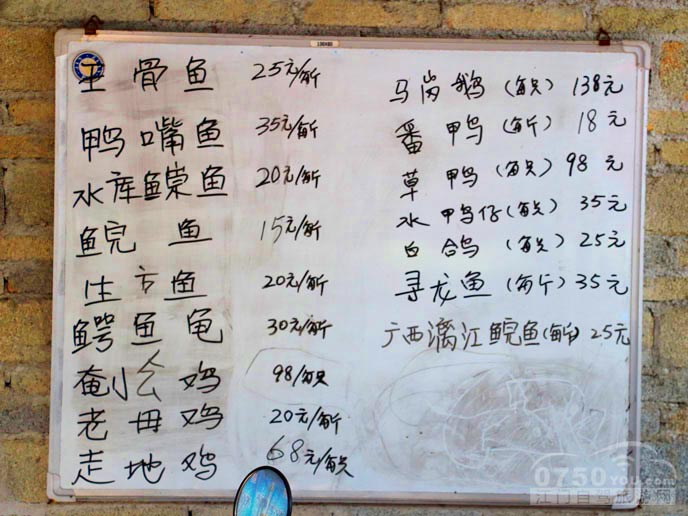 骨鱼 25元/每斤
鸭嘴鱼 35元/每斤
水库鱼 20元/每斤
鲩鱼 15元/每斤
生鱼 20元/每斤
鳄鱼龟 30元/每斤
鸡 98/每只
老母鸡 20元/每斤
走地鸡 68元/每只
马岗鹅(每只) 138元
番鸭(每斤) 18元
草鸭(每只) 98元
水鸭仔(每只) 35元
白鸽(每只) 25元
寻龙鱼(每斤) 35元
广西漓江鲩鱼(每斤) 25元
0750You.com
江门自驾旅游网